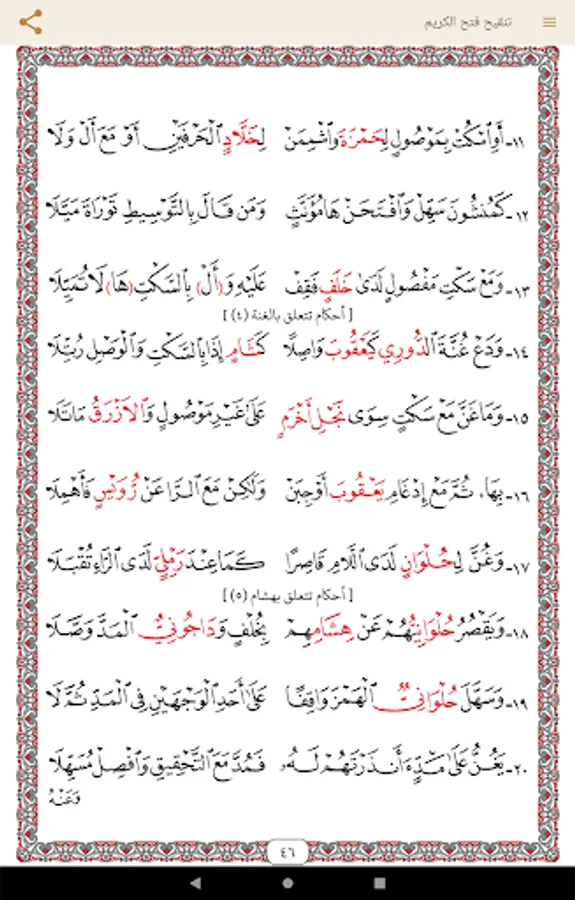 تنقيح فتح الكريم
١١- أَوِ اسْكُتْ بِمَوْصُولٍ لِحَمْزَةَ وَاشْمِمَنْ لِخَلَّادٍ الْحَرْفَيْنِ أَوْ مَعَ أَلْ وَلَا
١٢- كَمُنشُونَ سَهِّلْ وَافْتَحَنْ هَا مُؤَنَّثٍ وَمَن قَالَ بِالتَّوْسِيطِ تَوْرَاةَ مَيَّلَا
١٣- وَمَعْ سَكْتِ مَفْصُولٍ لَدَى خَلَفٍ فَقِفْ عَلَيْهِ وَ(أَلْ) بِالسَّكْتِ (هَا) لَا تُمَيِّلَا
[ أحكام تتعلق بالغنة (٤) ]
١٤- وَدَعْ غُنَّةَ الدُّورِي كَيَعْقُوبَ وَاصِلًا كَشَامٍ إِذَا بِالسَّكْتِ وَالْوَصْلِ رُتِّلَا
١٥- وَمَا غَنَّ مَعْ سَكْتٍ سِوَى نَجْلِ أَخْرَمٍ عَلَى غَيْرِ مَوْصُولٍ وَالَازْرَقُ مَا تَلَا
١٦- بِهَا، ثُمَّ مَعْ إِدْغَامِ يَعْقُوبَ أَوْجِبَنْ وَلَكِنْ مَعَ الرَّا عَنْ رُوَيْسٍ فَأَهْمِلَا
١٧- وَغُنَّ لِحُلْوَانٍ لَدَى اللَّامِ قَاصِرًا كَمَا عِنْدَ رَمْلِيٍّ لَدَى الرَّاءِ تُقْبَلَا
[ أحكام تتعلق بهشام (٥) ]
١٨- وَيَقْصُرُ حُلْوَانِيُّهُمْ عَنْ هِشَامِهِمْ بِخُلْفٍ وَدَاجُونِيٌّ الْمَدَّ وَصَّلَا
١٩- وَسَهَّلَ حُلْوَانِيٌّ الْهَمْزَ وَاقِفًا عَلَى أَحَدِ الْوَجْهَيْنِ فِي الْمَدِّ ثُمَّ لَا
٢٠- يَغُنُّ عَلَى مَدٍّ ءَأَنذَرْتَهُمْ لَهُ فَمُدَّ مَعَ التَّحْقِيقِ وَافْصِلْ مُسَهِّلَا
وَعَنْهُ
٤٦